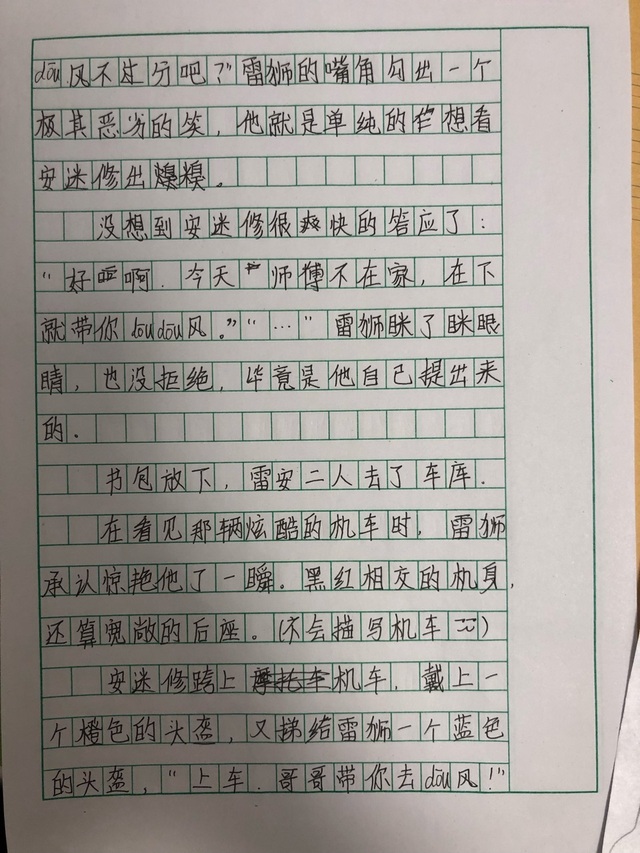 dōu风不过分吧？”雷狮的嘴角勾出一个
极其恶劣的笑，他就是单纯的想看
安迷修出糗。
没想到安迷修很爽快的答应了：
“好啊．今天师傅不在家，在下
就带你dōudōu风。”“…”雷狮眯了眯眼
睛，也没拒绝，毕竟是他自己提出来
的．
书包放下，雷安二人去了车库．
在看见那辆炫酷的机车时，雷狮
承认惊艳他了一瞬。黑红相交的机身，
还算宽敞的后座。（不会描写机车）
安迷修跨上摩托车机车．戴上一
个橙色的头盔，又递给雷狮一个蓝色
的头盔，“上车．哥哥带你去dōu风！”